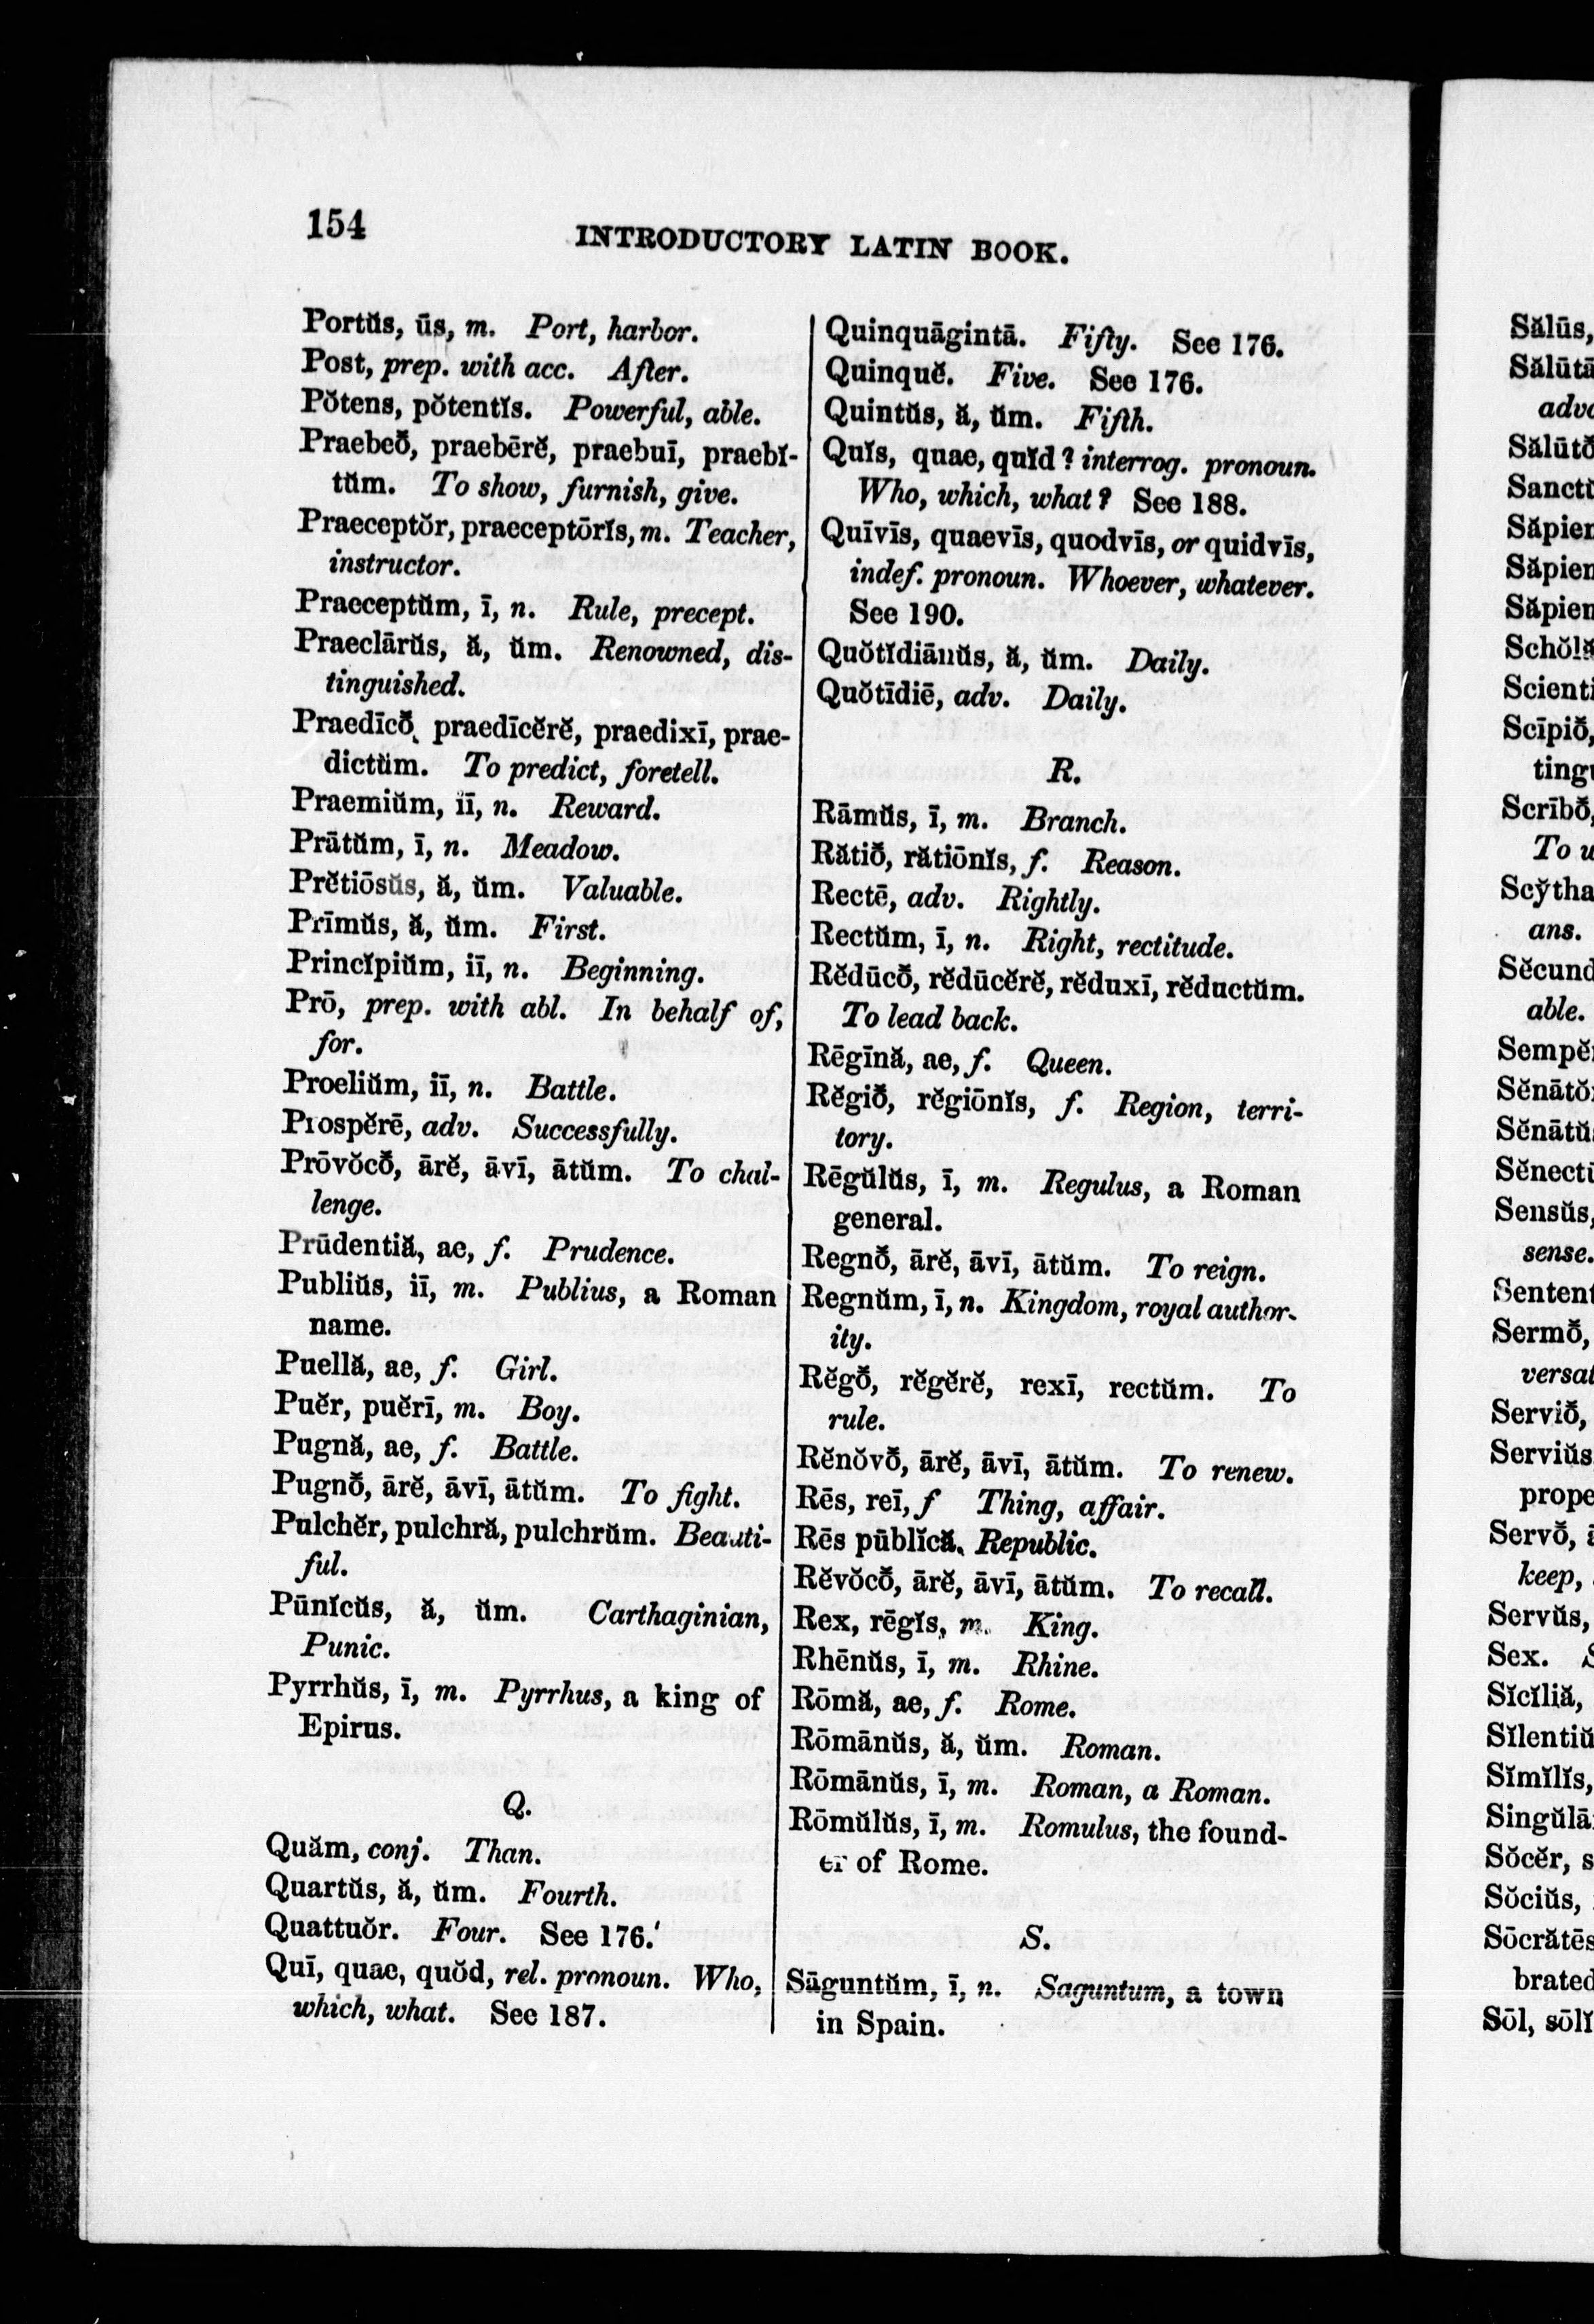 154
INTRODUCTORY LATIN BOOK.
Portŭs, ūs, m. Port, harbor.
Post, prep. with acc. After.
Pŏtens, pŏtentĭs. Powerful, able.
Praebeō̆, praebērĕ, praebuī, praebĭ-
tŭm. To show, furnish, give.
Praeceptŏr, praeceptōrĭs, m. Teacher,
instructor.
Praeceptŭm, ī, n. Rule, precept.
Praeclārŭs, ă, ŭm. Renowned, dis-
tinguished.
Praedīcō̆, praedīcĕrĕ, praedixī, prae-
dictŭm. To predict, foretell.
Praemiŭm, iī, n. Reward.
Prātŭm, ī, n. Meadow.
Prĕtiōsŭs, ă, ŭm. Valuable.
Prīmŭs, ă, ŭm. First.
Princĭpiŭm, iī, n. Beginning.
Prō, prep. with abl. In behalf of,
for.
Proeliŭm, iī, n. Battle.
Prospĕrē, adv. Successfully.
Prōvŏcō̆, ārĕ, āvī, ātŭm. To chal-
lenge.
Prūdentiă, ae, f. Prudence.
Publiŭs, iī, m. Publius, a Roman
name.
Puellă, ae, f. Girl.
Puĕr, puĕrī, m. Boy.
Pugnă, ae, f. Battle.
Pugnō̆, ārĕ, āvī, ātŭm. To fight.
Pulchĕr, pulchră, pulchrŭm. Beauti-
ful.
Pūnĭcŭs, ă, ŭm. Carthaginian,
Punic.
Pyrrhŭs, ī, m. Pyrrhus, a king of
Epirus.
Q.
Quăm, conj. Than.
Quartŭs, ă, ŭm. Fourth.
Quattuŏr. Four. See 176.
Quī, quae, quŏd, rel. pronoun. Who,
which, what. See 187.
Quinquāgintā. Fifty. See 176.
Quinquĕ. Five. See 176.
Quintŭs, ă, ŭm. Fifth.
Quĭs, quae, quĭd? interrog. pronoun.
Who, which, what? See 188.
Quīvīs, quaevīs, quodvīs, or quidvīs,
indef. pronoun. Whoever, whatever.
See 190.
Quŏtĭdiānŭs, ă, ŭm. Daily.
Quŏtīdiē, adv. Daily.
R.
Rāmŭs, ī, m. Branch.
Rătiō̆, rătiōnĭs, f. Reason.
Rectē, adv. Rightly.
Rectŭm, ī, n. Right, rectitude.
Rĕdūcō̆, rĕdūcĕrĕ, rĕduxī, rĕductŭm.
To lead back.
Rēgīnă, ae, f. Queen.
Rĕgiō̆, rĕgiōnĭs, f. Region, terri-
tory.
Rēgŭlŭs, ī, m. Regulus, a Roman
general.
Regnō̆, ārĕ, āvī, ātŭm. To reign.
Regnŭm, ī, n. Kingdom, royal author-
ity.
Rĕgō̆, rĕgĕrĕ, rexī, rectŭm. To
rule.
Rĕnŏvō̆, ārĕ, āvī, ātŭm. To renew.
Rēs, reī, f Thing, affair.
Rēs pūblĭcă. Republic.
Rĕvŏcō̆, ārĕ, āvī, ātŭm. To recall.
Rex, rēgĭs, m. King.
Rhēnŭs, ī, m. Rhine.
Rōmă, ae, f. Rome.
Rōmānŭs, ă, ŭm. Roman.
Rōmānŭs, ī, m. Roman, a Roman.
Rōmŭlŭs, ī, m. Romulus, the found-
er of Rome.
S.
Săguntŭm, ī, n. Saguntum, a town
in Spain.
Sălūs,
Sălūtā
advo
Sălūtō̆
Sanctŭ
Săpien
Săpien
Săpien
Schŏlă
Scienti
Scīpiō̆,
tingu
Scrībō̆,
To w
Scy̆tha
ans.
Sĕcund
able.
Sempĕr
Sĕnātŏr
Sĕnātŭs
Sĕnectŭ
Sensŭs,
sense.
Sentent
Sermō̆,
versat
Serviō̆,
Serviŭs
prope
Servō̆, ā
keep,
Servŭs,
Sex. S
Sĭcĭliă,
Sĭlentiŭ
Sĭmĭlĭs,
Singŭlā
Sŏcĕr, s
Sŏciŭs,
Sōcrătēs
brated
Sōl, sōlĭ